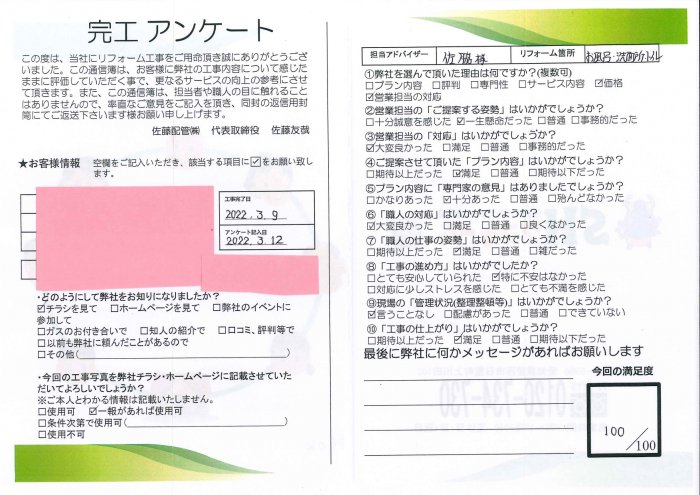 完工 アンケート
この度は、当社にリフォーム工事をご用命頂き誠にありがとうござ
いました。この通信簿は、お客様に弊社の工事内容について感じた
ままに評価していただく事で、更なるサービスの向上の参考にさせ
て頂きます。また、この通信簿は、担当者や職人の目に触れること
はありませんので、率直なご意見をご記入を頂き、同封の返信用封
筒にてご返送下さいます様お願い申し上げます。
佐藤配管㈱ 代表取締役 佐藤友哉
★お客様情報 空欄をご記入いただき、該当する項目に☑をお願い致し
ます。
工事完了日
2022.3.9
アンケート記入日
2022.3.12
・どのようにして弊社をお知りになりましたか?
☑チラシを見て □ホームページを見て □弊社のイベントに
参加して
□ガスのお付き合いで □知人の紹介で □口コミ、評判等で
□以前も弊社に頼んだことがあるので
□その他( )
・今回の工事写真を弊社チラシ・ホームページに記載させていた
だいてよろしいでしょうか?
※ご本人とわかる情報は記載いたしません。
□使用可 ☑一報があれば使用可
□条件次第で使用可( )
□使用不可
担当アドバイザー 佐脇様 リフォーム箇所 お風呂・洗面所・トイレ
①弊社を選んで頂いた理由は何ですか?(複数可)
□プラン内容 □評判 □専門性 □サービス内容 ☑価格
☑営業担当の対応
②営業担当の「ご提案する姿勢」はいかがでしょうか?
□十分誠意を感じた ☑一生懸命だった □普通 □事務的だった
③営業担当の「対応」はいかがでしょうか?
☑大変良かった □満足 □普通 □事務的だった
④ご提案させて頂いた「プラン内容」はいかがでしょうか?
□期待以上だった ☑満足 □普通 □期待以下だった
⑤プラン内容に「専門家の意見」はありましたでしょうか?
□かなりあった ☑十分あった □普通 □殆んどなかった
⑥「職人の対応」はいかがでしょうか?
☑大変良かった □満足 □普通 □良くなかった
⑦「職人の仕事の姿勢」はいかがでしょうか?
□期待以上だった ☑満足 □普通 □雑だった
⑧「工事の進め方」はいかがでしたか?
□とても安心していられた ☑特に不安はなかった
□対応に少しストレスを感じた □とても不満を感じた
⑨現場の「管理状況(整理整頓等)」はいかがでしょうか?
☑言うことなし □配慮があった □普通 □できていない
⑩「工事の仕上がり」はいかがでしょうか?
□期待以上だった ☑満足 □普通 □期待以下だった
最後に弊社に何かメッセージがあればお願いします
今回の満足度
100
/100